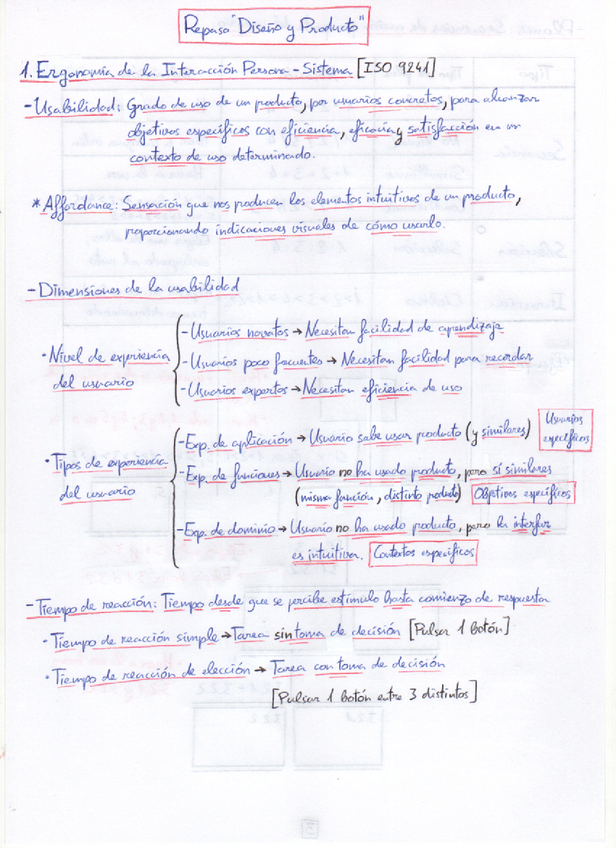 Repaso "Diseño y Producto"
1. Ergonomía de la Interacción Persona-Sistema [ISO 9241]
- Usabilidad: Grado de uso de un producto, por usuarios concretos, para alcanzar
objetivos específicos con eficiencia, eficacia y satisfacción en un
contexto de uso determinado.
* Affordance: Sensación que nos producen los elementos intuitivos de un producto,
proporcionando indicaciones visuales de cómo usarlo.
- Dimensiones de la usabilidad
• Nivel de experiencia del usuario
- Usuarios novatos → Necesitan facilidad de aprendizaje
- Usuarios poco frecuentes → Necesitan facilidad para recordar
- Usuarios expertos → Necesitan eficiencia de uso
• Tipos de experiencia del usuario
- Exp. de aplicación → Usuario sabe usar producto (y similares) Usuarios específicos
- Exp. de funciones → Usuario no ha usado producto, pero sí similares
(misma función, distinto producto) Objetivos específicos
- Exp. de dominio → Usuario no ha usado producto, pero la interfaz
es intuitiva. Contextos específicos
- Tiempo de reacción: Tiempo desde que se percibe estímulo hasta comienzo de respuesta
• Tiempo de reacción simple → Tarea sin toma de decisión [Pulsar 1 botón]
• Tiempo de reacción de elección → Tarea con toma de decisión
[Pulsar 1 botón entre 3 distintos]